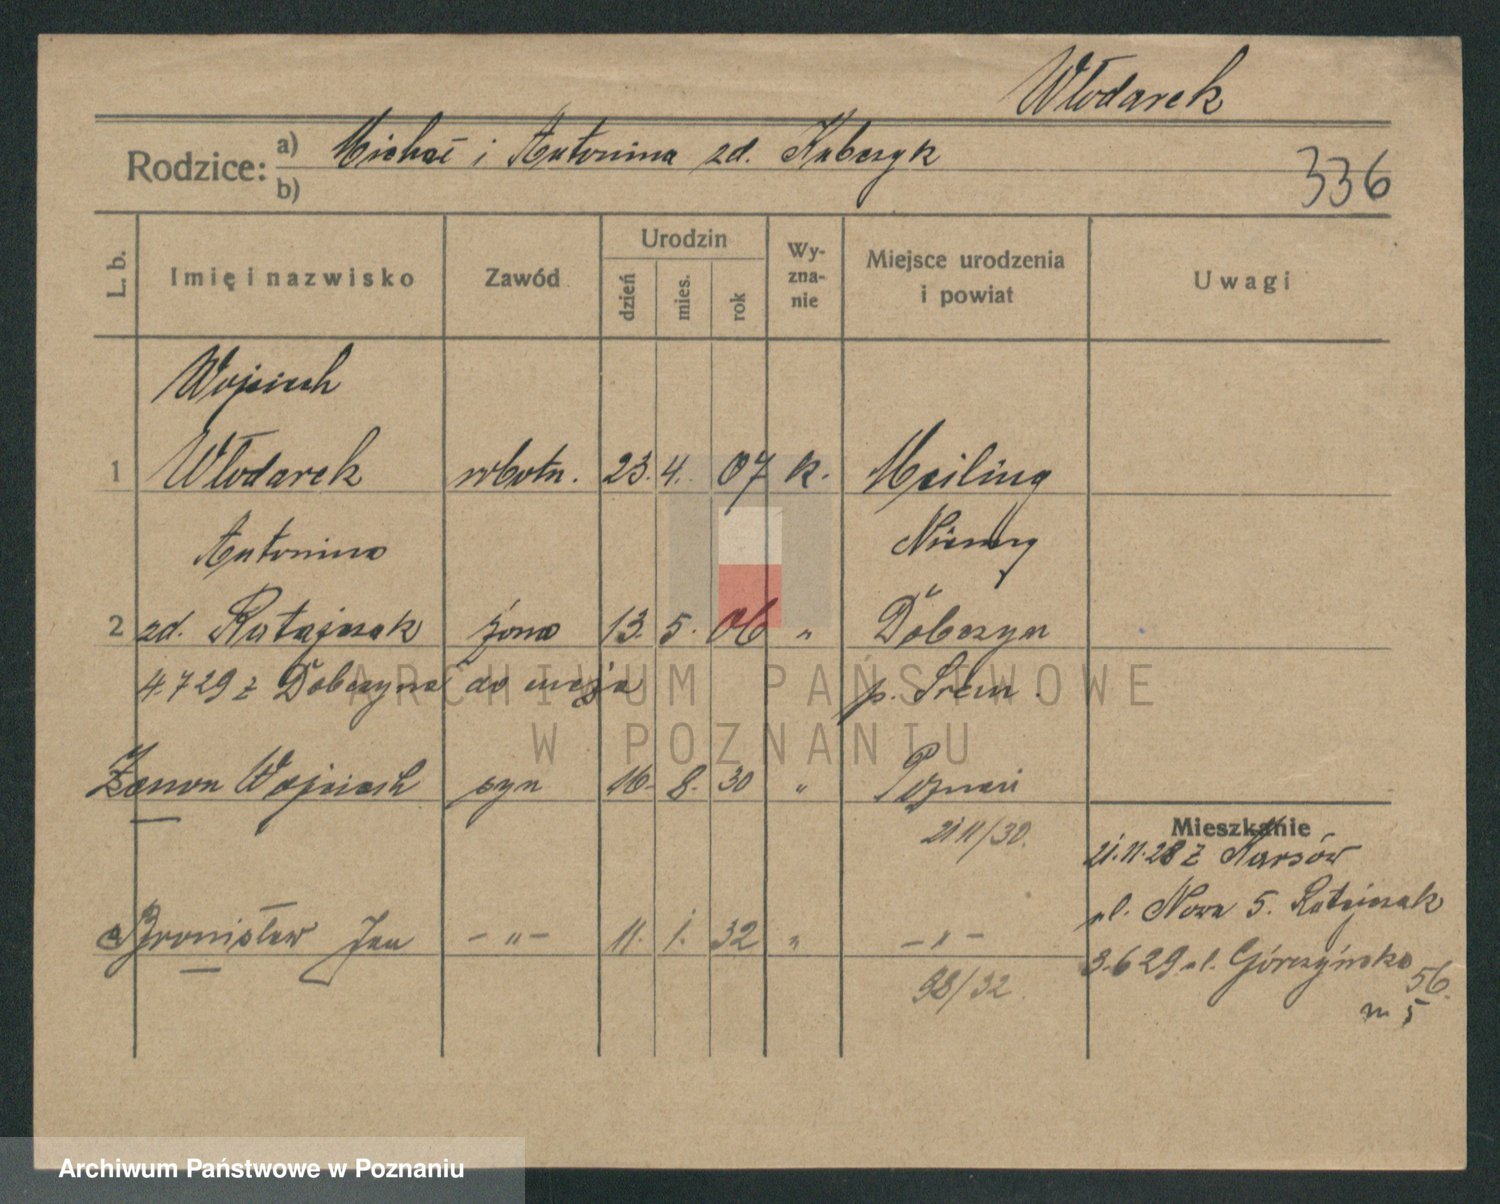 Włodarek
Rodzice: a) Michał i Antonina zd. Kubczyk
b)
336
L. b. Imię i nazwisko Zawód Urodzin dzień mies. rok Wy-zna-nie Miejsce urodzenia i powiat Uwagi
Wojciech
1 Włodarek robotn. 23. 4. 07 k. Meiling
Antonina Niemcy
2 zd. Ratajczak żona 13. 5. 06 " Dobczyn
4.7 29 z Dobczyna do męża p. Śrem.
Zenon Wojciech syn 16. 8. 30 " Poznań
Mieszkanie
21 11/30.
21.11.28 z Karsów
ul. Nowa 5. Ratajczak
Bronisław Jan - " - 11. 1. 32 " - " -
3.6 29 ul. Górczyńska
56.
98/32.
m 5
ARCHIWUM PAŃSTWOWE
W POZNANIU
Archiwum Państwowe w Poznaniu